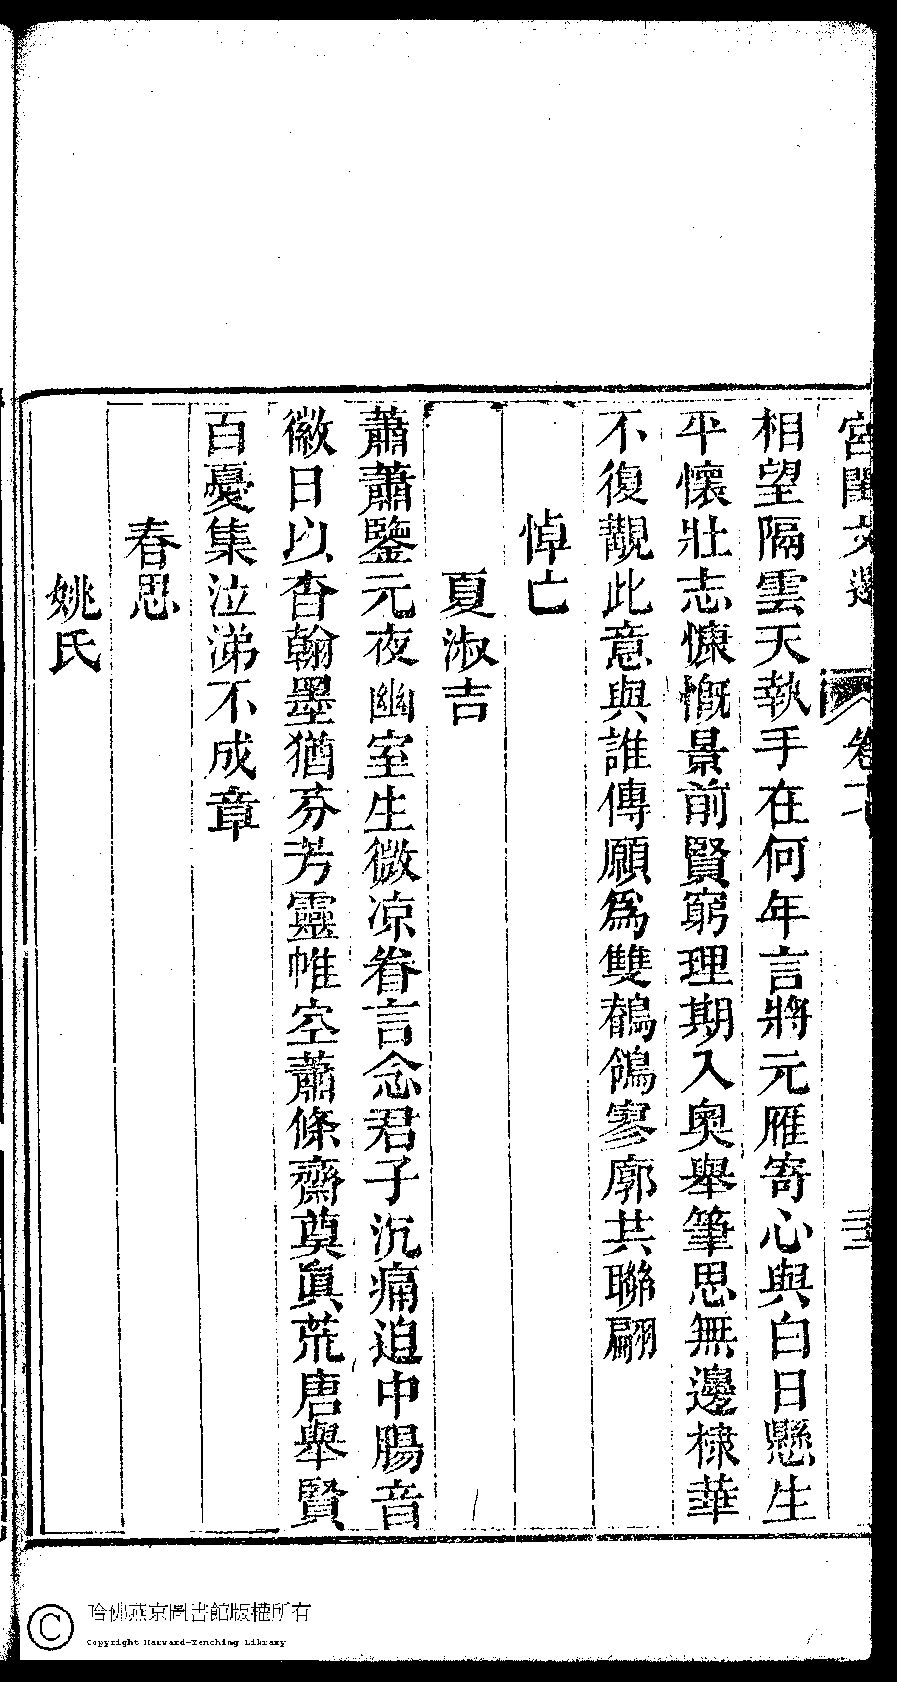 宮閨文選 卷十 三
相望隔雲天執手在何年言將元雁寄心與白日懸生
平懷壯志慷慨景前賢窮理期入奧舉筆思無邊棣華
不復覩此意與誰傳願爲雙鶺鴒寥廓共聯翩
悼亡
夏淑吉
蕭蕭鑒元夜幽室生微凉眷言念君子沉痛迫中腸音
徽日以杳翰墨猶芬芳靈帷空蕭條齋奠眞荒唐舉賢
百憂集泣涕不成章
春思
姚氏
哈佛燕京圖書館版權所有
Copyright Harvard-Yenching Library